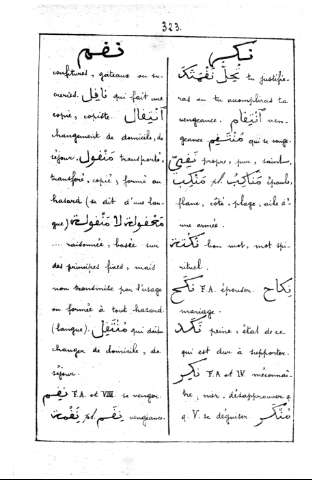 323
نقم
confitures, gateaux ou su-
creries. نَاقِل qui fait une
copie, copiste. اَنْتِقَال
changement de domicile, de
séjour. مَنْقُول transporté,
transféré, copié, formé au
hasard (se dit d'une lan-
gue) مَعْقُولَة لَا مَنْقُولَة
..... raisonnée, basée sur
des principes fixes, mais
non transmise par l'usage
ou formée à tout hasard
(langue). مُنْتَقِل qui doit
changer de domicile, de
séjour.
نِقِم F.A. et VIII. se venger.
نِقْمَة pl. نِقَم vengeance.
نكر
tu justifie-
ras ou tu accompliras ta
vengeance. اَنْتِقَام ven-
geance مُنْتَقِم qui se venge.
نَقِيّ propre, pur, saint.
مَنْكِب pl. مَنَاكِب épaule,
flanc, côté, plage, aile d'
une armée.
نُكْتَة bon mot, mot spi-
rituel.
نَكَح F.A. épouser. نِكَاح
mariage.
نَكَد peine, état de ce
qui est dur à supporter.
نَكِر F.A. et IV. méconnaî-
tre, nier, désapprouver q
q. V. se déguiser مُنْكَر